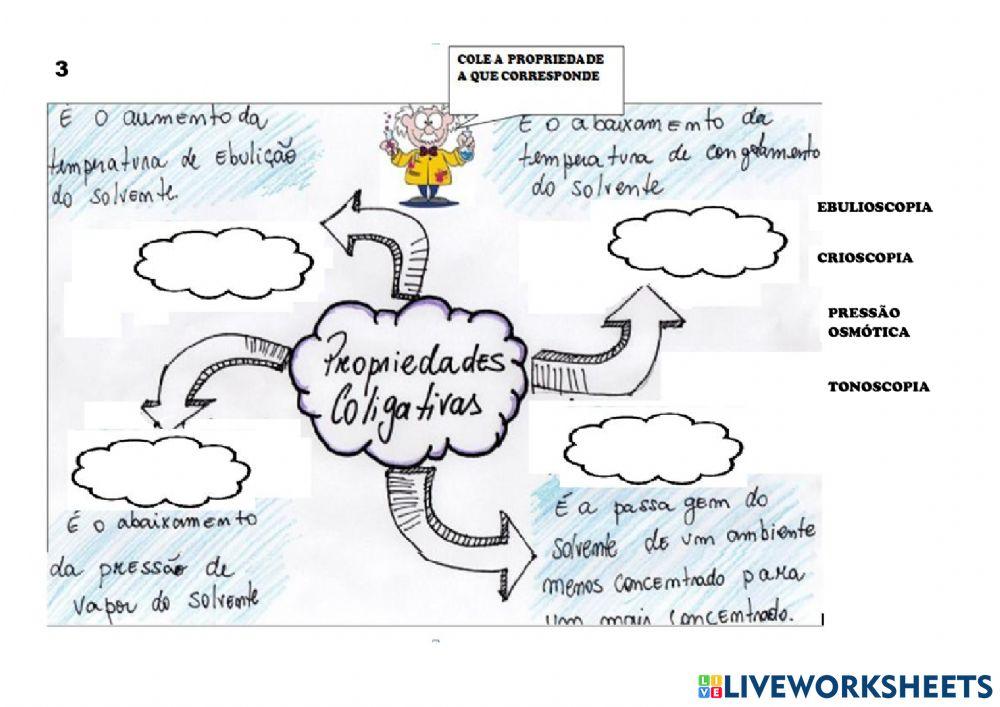 3
COLE A PROPRIEDADE
A QUE CORRESPONDE
É O aumento da
temperatura de Ebulição
do solvente.
É o abaixamento da
temperatura de congelamento
do solvente
EBULIOSCOPIA
CRIOSCOPIA
PRESSÃO
OSMÓTICA
TONOSCOPIA
Propriedades
Coligativas
É o abaixamento
da pressão de
vapor do solvente
É a passagem do
solvente de um ambiente
menos concentrado para
um mais concentrado.
LIVE LIVEWORKSHEETS